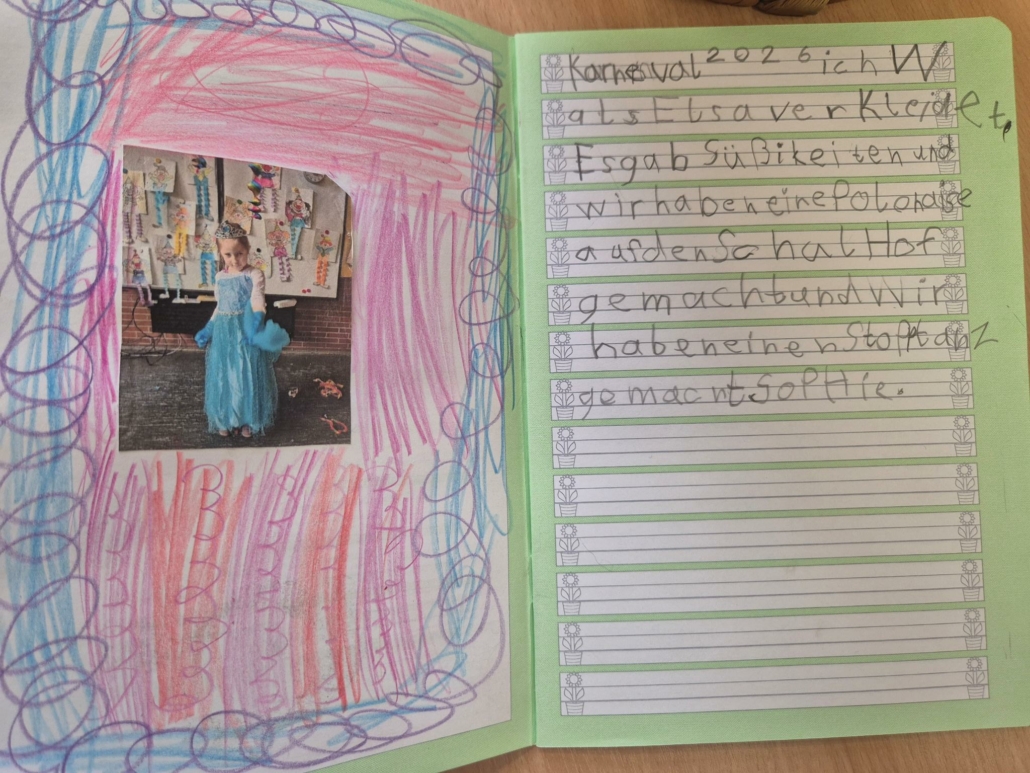 Karnesval 2026 ich W
als Elsa verKleidet,
Es gab Süßikeiten und
wir haben eine Polonaise
aus den SchalHof
gemacht und Wir
haben einen Stopptanz
gemacht SoPHie.